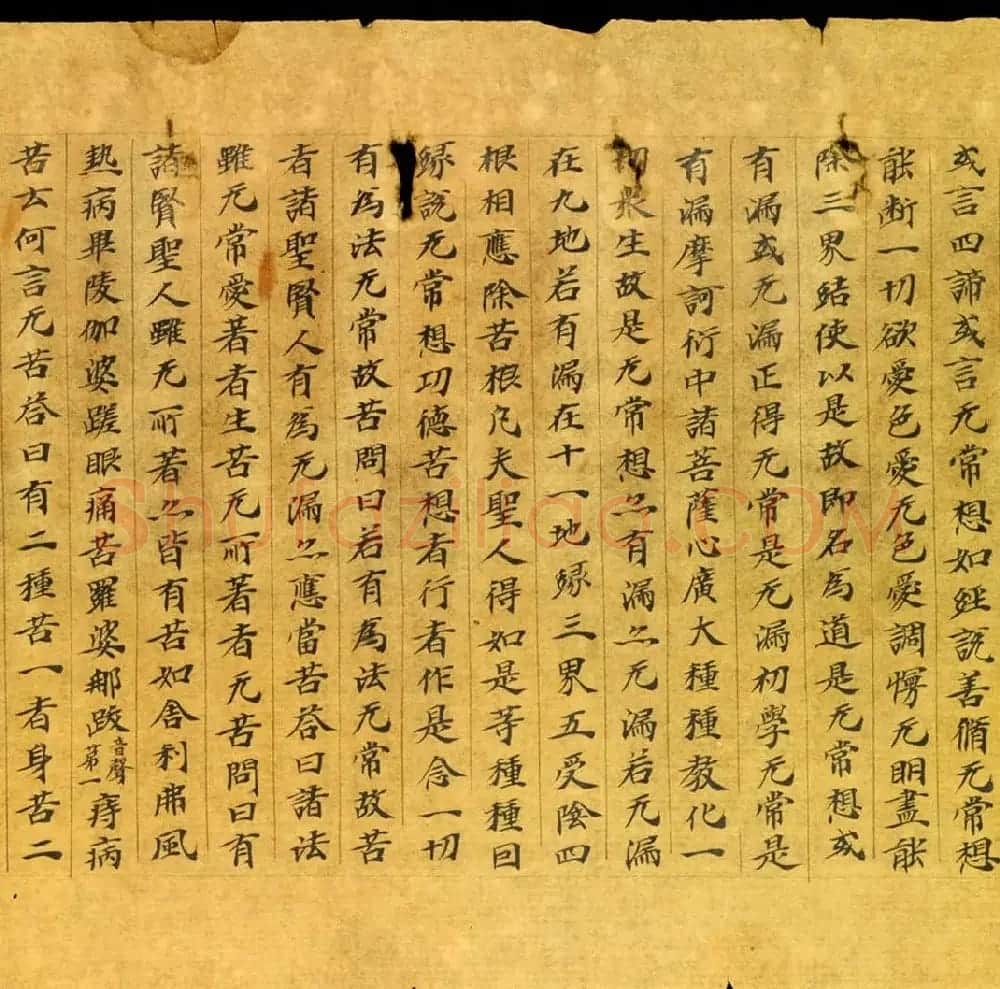 或言四諦或言无常想如經說善脩无常想
能断一切欲愛色愛无色愛調愕无明盡能
除三界結使以是故即名為道是无常想或
有漏或无漏正得无常是无漏初學无常是
有漏摩訶衍中諸菩薩心廣大種種教化一
切衆生故是无常想亦有漏亦无漏若无漏
在九地若有漏在十一地緣三界五受陰四
根相應除苦根凡夫聖人得如是等種種囙
緣說无常想功德苦想者行者作是念一切
有為法无常故苦問曰若有為法无常故苦
者諸聖賢人有為无漏亦應當苦荅曰諸法
雖无常愛著者生苦无所著者无苦問曰有
諸賢聖人雖无所著亦皆有苦如舍利弗風
熱病畢陵伽婆蹉眼痛苦羅婆那跋音聲第一痔病
苦云何言无苦荅曰有二種苦一者身苦二
shufaziliao.com